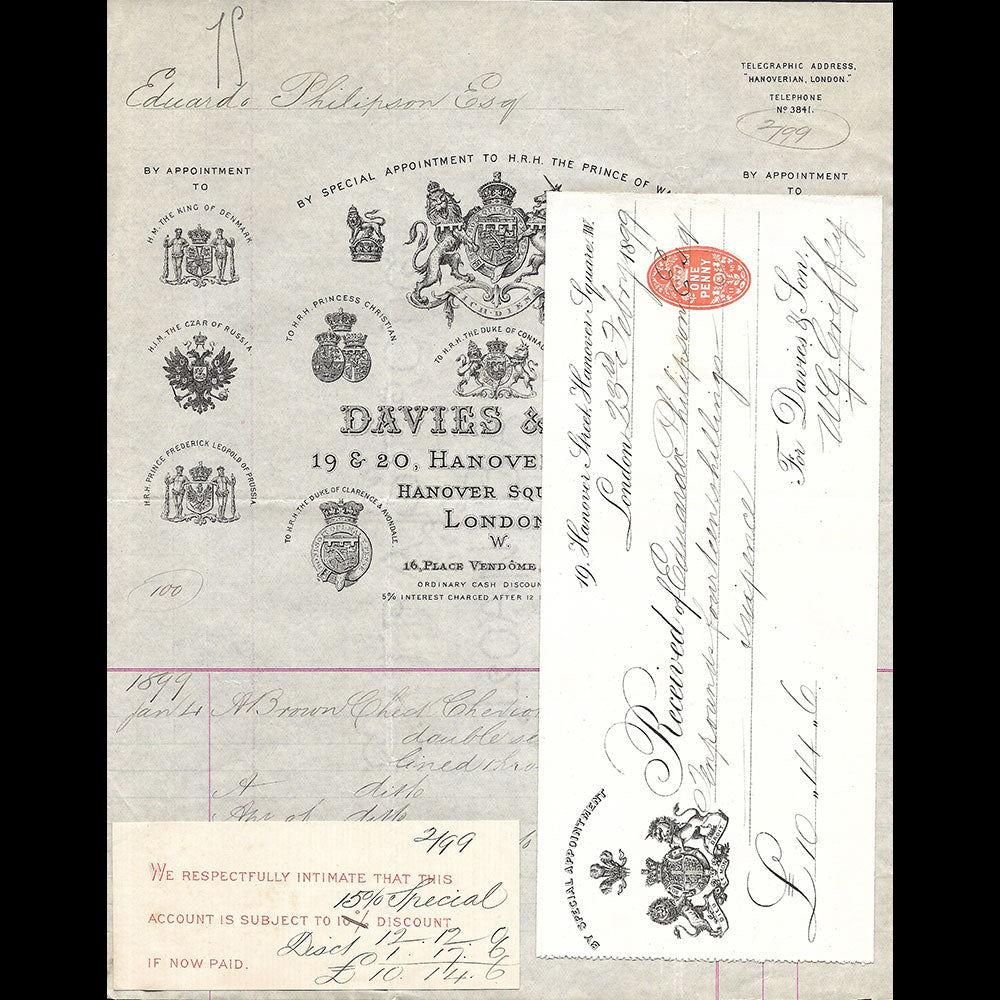 15
Eduardo Philipson Esq
TELEGRAPHIC ADDRESS,
"HANOVERIAN, LONDON."
TELEPHONE
No 3841.
2/99
BY APPOINTMENT
TO
H.M. THE KING OF DENMARK
H.I.M. THE CZAR OF RUSSIA.
H.R.H. PRINCE FREDERICK LEOPOLD OF PRUSSIA.
100
BY SPECIAL APPOINTMENT TO H.R.H. THE PRINCE OF WA
ICH DIEN
TO H.R.H. PRINCESS CHRISTIAN
TO H.R.H. THE DUKE OF CONNAU
DAVIES &
19 & 20, HANOVE
HANOVER SQU
LONDON
W.
TO H.R.H. THE DUKE OF CLARENCE & AVONDALE.
16, PLACE VENDÔME,
ORDINARY CASH DISCOUN
5% INTEREST CHARGED AFTER 12
BY APPOINTMENT
TO
1899
Jan 4 A Brown Check Cheviot
double se
lined
A ditto
ditto
2/99
WE RESPECTFULLY INTIMATE THAT THIS
15% Special
ACCOUNT IS SUBJECT TO 10% DISCOUNT
12.12.0
IF NOW PAID.
Disct 1.17.6
£10.14.6
19, Hanover Street, Hanover Square. W.
London 23rd Febry 1899
Received of Eduardo Philipson Esq
Ten pounds fourteen shillings
sixpence
£10 " 14 " 6
For Davies & Son.
W G Griffey
ONE
PENNY
BY SPECIAL APPOINTMENT